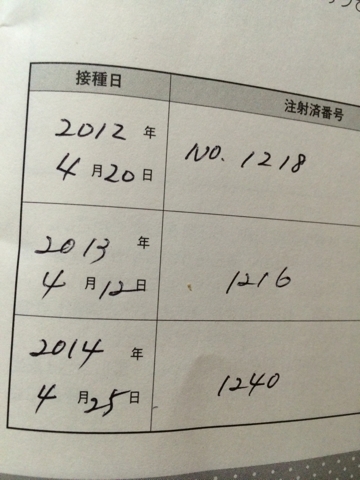 接種日 注射済番号
2012年
4月20日
NO. 1218
2013年
4月12日
1216
2014年
4月25日
1240